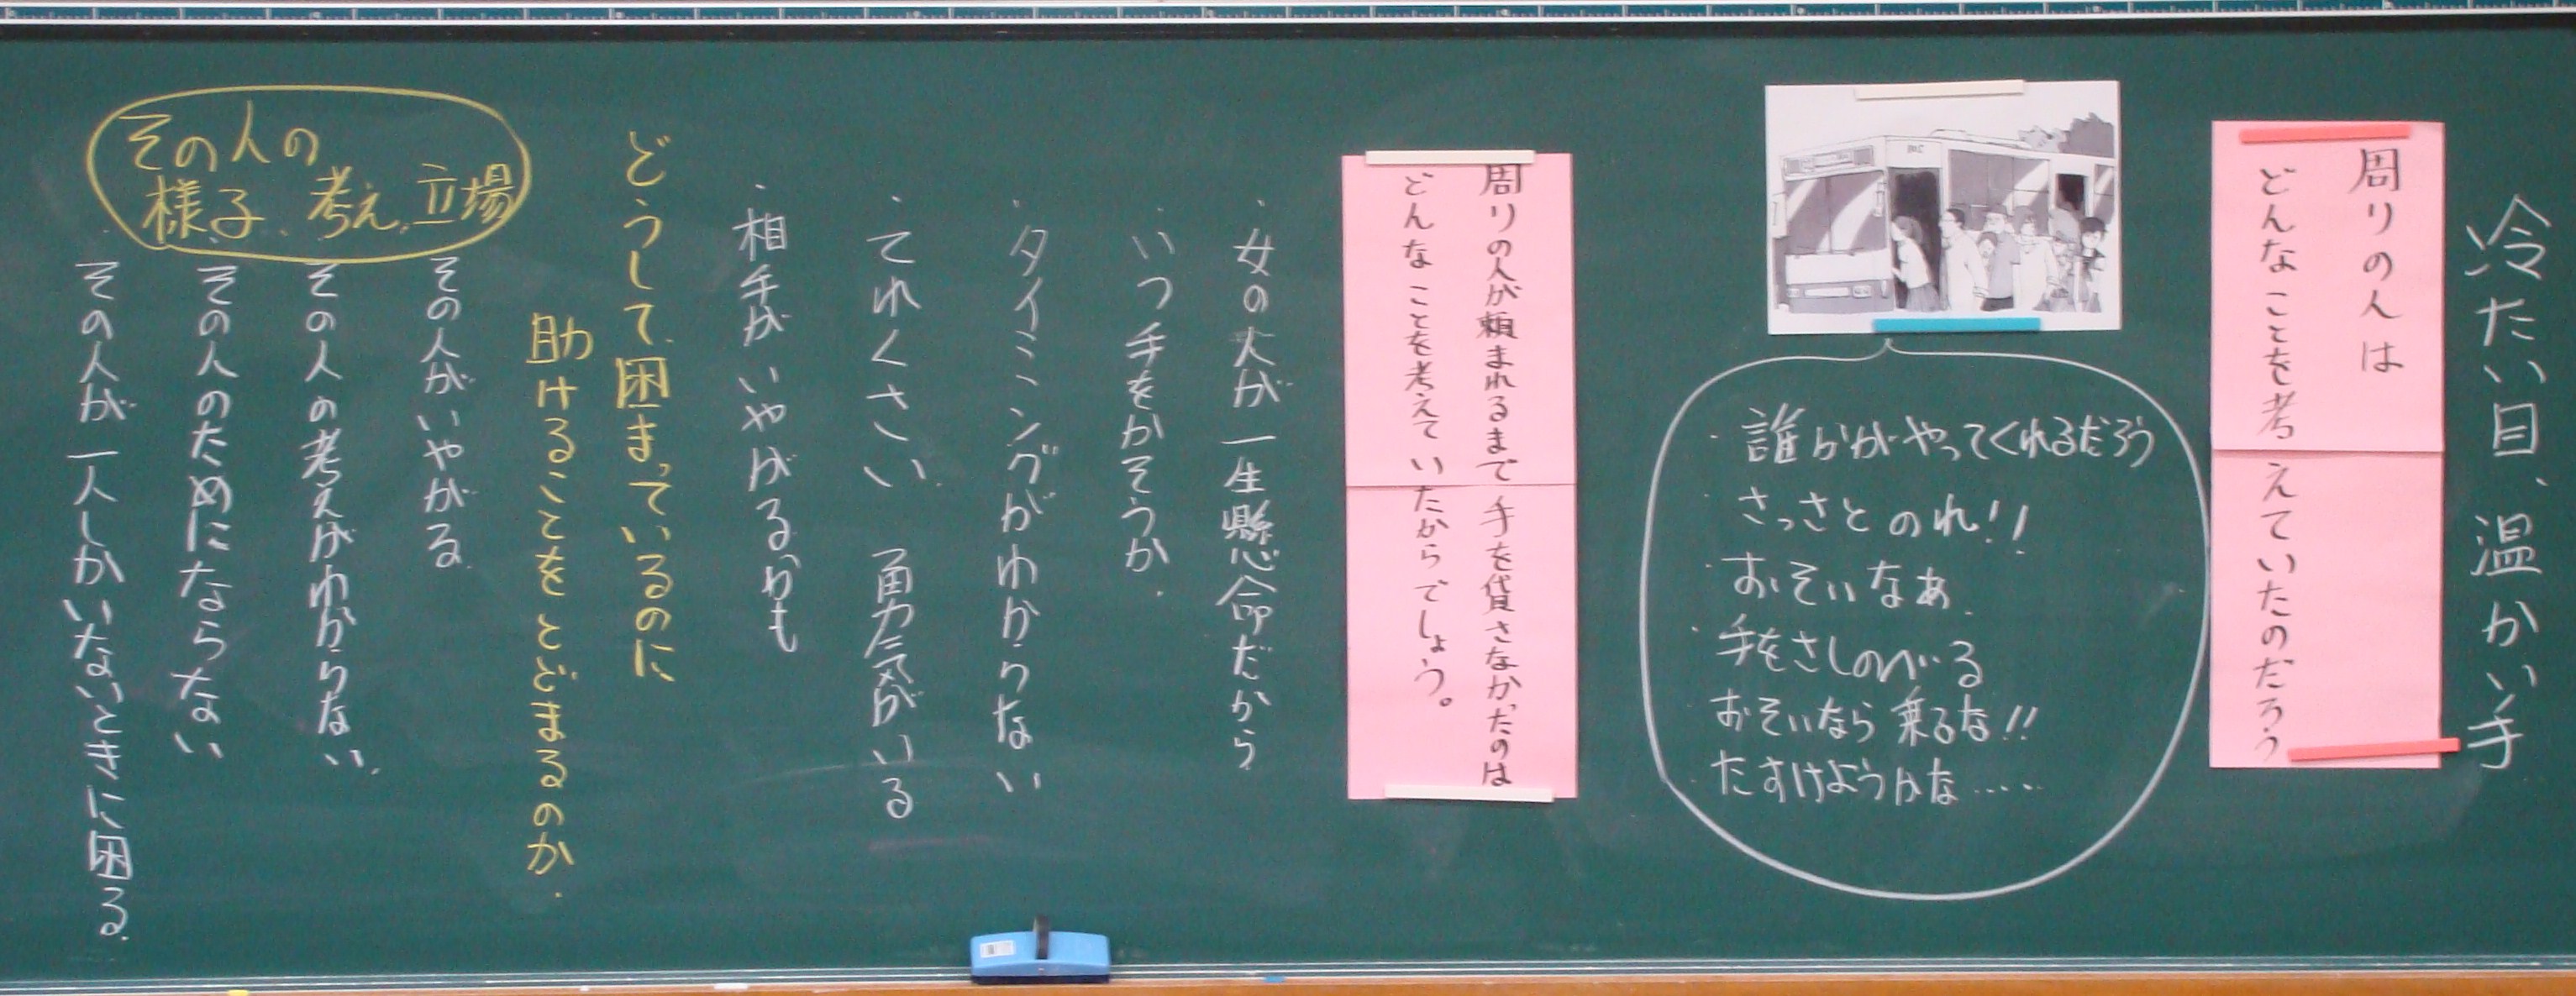 冷たい日、温かい手
周りの人は
どんなことを考えていたのだろう
・誰かがやってくれるだろう
・さっさとのれ!!
・おそいなぁ.
・手をさしのべる
・おそいなら乗るな!!
・たすけようかな……
周りの人が頼まれるまで手を貸さなかったのは
どんなことを考えていたからでしょう。
・女の人が一生懸命だから
・いつ手をかそうか.
・タイミングがわからない
・てれくさい 勇気がいる
・相手がいやがるかも
どうして、困まっているのに
助けることをとどまるのか.
その人の
様子、考え、立場
・その人がいやがる.
・その人の考えがわからない.
・その人のためにならない
・その人が一人しかいないときに困る.